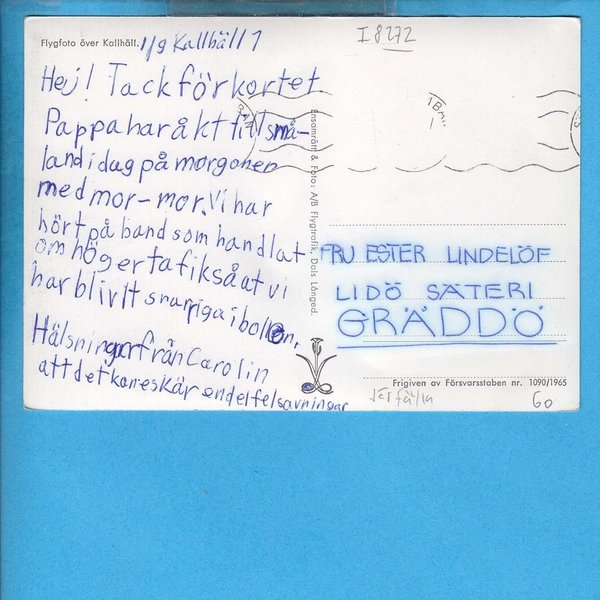 Flygfoto över Kallhäll.
1/9 Kallhäll 1
I 8272
Hej! Tack för kortet
Pappa har åkt till små-
land idag på morgonen
med mor-mor. Vi har
hört på band som handlat
om högertafik så at vi
har blivit snurriga i bollen.
Hälsningar från Carolin
att det kan eskär en del felsavningar
Ensamrätt & Foto: A/B Flygtrafik, Dals Långed.
FRU ESTER LINDELÖF
LIDÖ SÄTERI
GRÄDDÖ
Frigiven av Försvarsstaben nr. 1090/1965
Järfälla
60